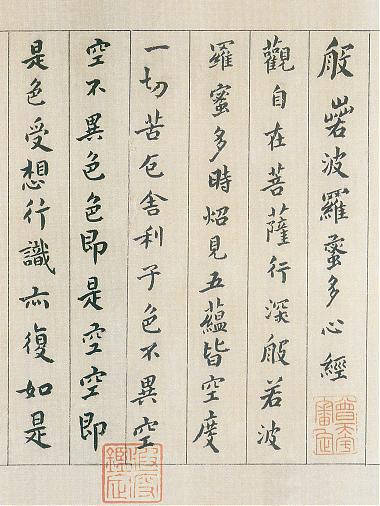 般若波羅蜜多心經
觀自在菩薩行深般若波
羅蜜多時炤見五蘊皆空度
一切苦厄舍利子色不異空
空不異色色即是空空即
是色受想行識亦復如是